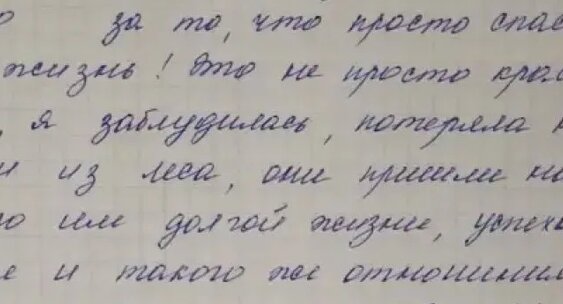 за то, что просто спас
жизнь! Это не просто крас
, я заблудилась, потеряла
и из леса, они пришли на
о им долгой жизни, успехо
е и такого же отношения